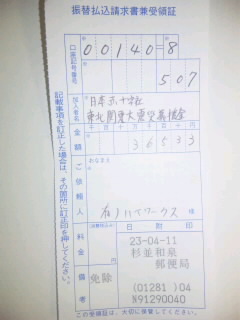 振替払込請求書兼受領証
口座記号番号
00140=8
507
加入者名
日本赤十字社
東北関東大震災義援金
金額
千 百 十 万 千 百 十 円
36533
ご依頼人
おなまえ
有)ハイワークス 様
料金
備考
免除
日附印
23-04-11
杉並和泉
郵便局
(01281)04
N91290040
記載事項を訂正した場合は、その箇所に訂正印を押してください。
この受領証は、大切に保管してください。